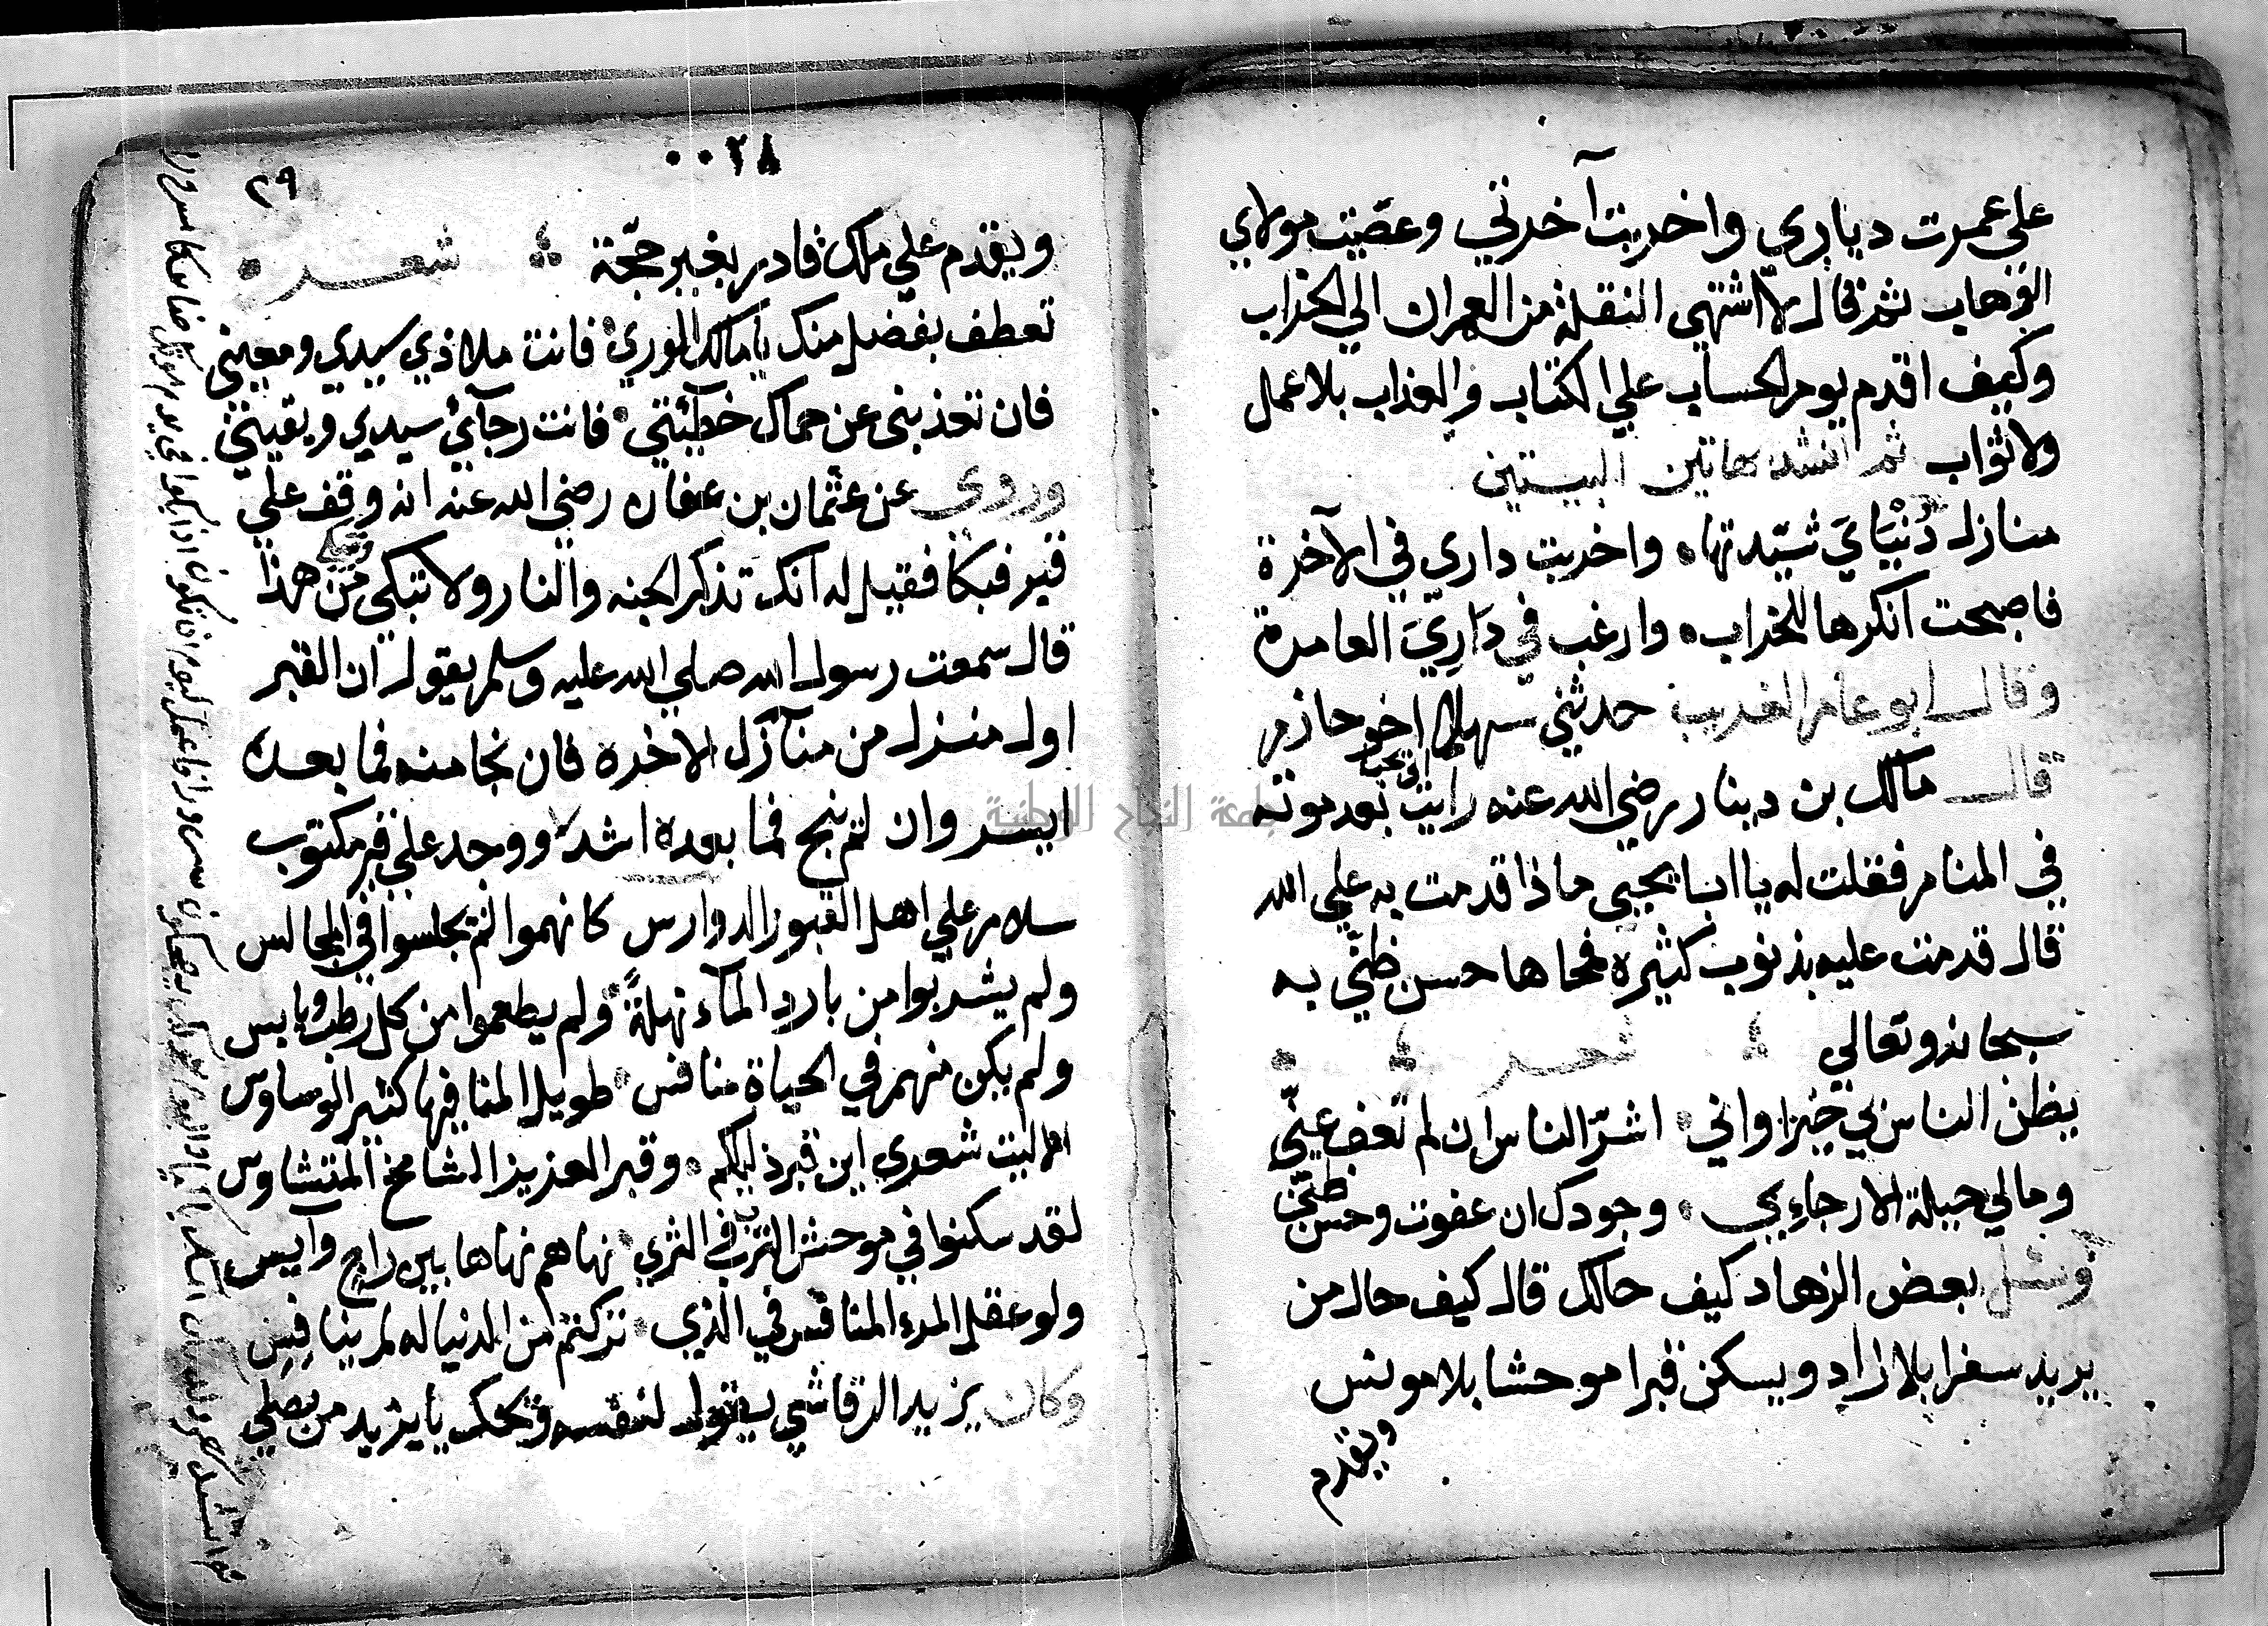 علي عمرت دياري واخربت آخرتي وعصيت مولاي
الوهاب ثم قال لا اشتهي النقلة من العمران الي الخراب
وكيف اقدم يوم الحساب علي الكتاب والعذاب بلا عمل
ولا ثواب ثم انشد هاتين البيتين
منازل دُنْيَايَ شيّدتها واخربت داري في الآخرة
فاصبحت انكرها للخراب وارغب في دَارِيَ العامرة
وقال ابو عامر الغريب حدثني سهيل اخو حازم
قال مالك بن دينار رضي الله عنه رايت بعد موته
في المنام فقلت له يا ابا يحيي ماذا قدمت به علي الله
قال قدمت عليه بذنوب كثيرة فمحاها حسن ظنّي به
سبحانه وتعالي شعر
يظن الناس بي خيرا واني اشرّ الناس ان لم تعف عنّي
ومالي حيلة الا رجاءي وجودك ان عفوت وحسن ظنّي
وسئل بعض الزهاد كيف حالك قال كيف حال من
يريد سفرا بلا زاد ويسكن قبرا موحشا بلا مونس
ويقدم
٠٠٢٨
٢٩
ويقدم علي ملك قادر بغير حجّة شعر
تعطف بفضل منك يا مالك الوري فانت ملاذي سيدي ومعيني
فان تعذبني عن حماك خطيئتي فانت رجآئي سيدي ويقيني
وروي عن عثمان بن عفان رضي الله عنه انه وقف علي
قبر فبكا فقيل له انك تذكر الجنه والنار ولا تبكي وتبكي من هذا
قال سمعت رسول الله صلي الله عليه وسلم يقول ان القبر
اول منزل من منآزل الاخره فان نجا منه فما بعده
ايسر وان لم ينج فما بعده اشد ووجد علي قبر مكتوب
سلام علي اهل القبور الدوارس كانهموا لم يجلسوا في المجالس
ولم يشربوا من بارد المآء نهلةً ولم يطعموا من كل رطب ويابس
ولم يكن منهم في الحياة منافس طويل المنا فيها كثير الوساوس
الا ليت شعري اين قبر ذليلكم وقبر العزيز الشامخ المتشاوس
لقد سكنوا في موحش الترب في الثري نهاهم نهاها بين راج وآيس
ولو عقل المرء المنافس في الذي تركتم من الدنيا له لم ينافِسِ
وكان يزيد الرقاشي يقول لنفسه ويحك يا يزيد من يصلي
جامعة النجاح الوطنية